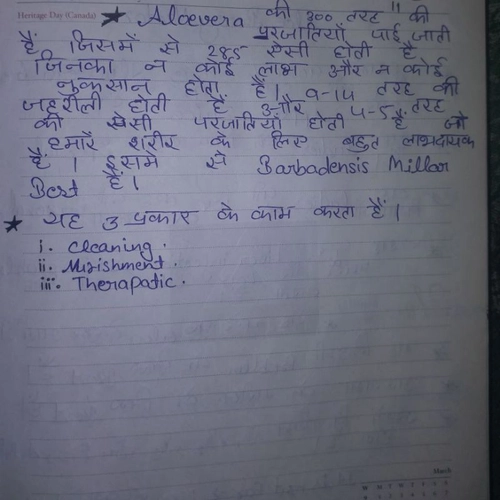 Heritage Day (Canada)
★ Aloevera की 300 तरह की
परजातियाँ पाई जाती
हैं जिसमें से 285 ऐसी होती है
जिनका न कोई लाभ और न कोई
नुकसान होता है। 9-14 तरह की
जहरीली होती हैं और 4-5 तरह
की ऐसी परजातियाँ होती हैं जो
हमारे शरीर के लिए बहुत लाभदायक
हैं। इसमें से Barbadensis Millar
Best है।
★ यह 3 प्रकार के काम करता हैं।
i. Cleaning.
ii. Nurishment.
iii. Therapatic.
March